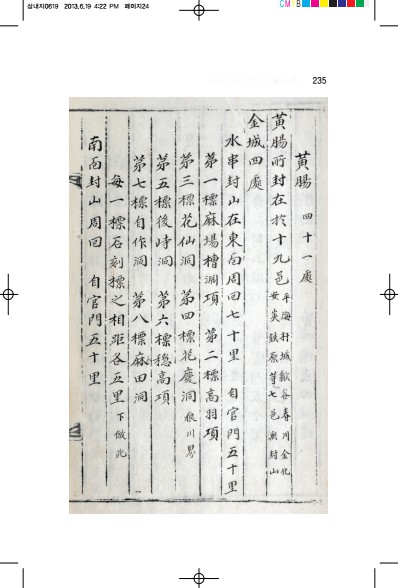 삼내지0619 2013.6.19 4:22 PM 페이지24
CMYB
235
黃腸 四十一處
黃腸所封在於十九邑 平海 杆城 歙谷 春川 金化
安峽 鉄原 等七邑無封山
金城四處
水串封山在東面周回七十里 自官門五十里
第一標麻場槽洞項 第二標高羽項
第三標花仙洞 第四標花慶洞 狼川界
第五標後峙洞 第六標稳高項
第七標自作洞 第八標麻田洞
每一標石刻標之相距各五里 下倣此
南面封山周回 自官門五十里